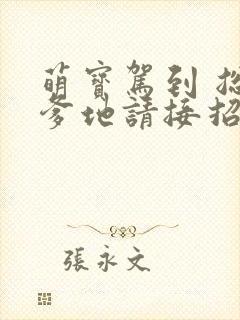 萌寶駕到 總
爹地請接招
張永文